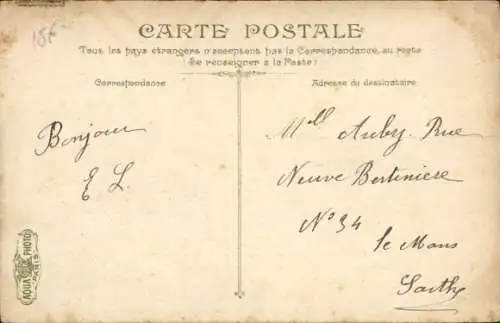 18F
CARTE POSTALE
Tous les pays étrangers n'acceptent pas la Correspondance au recto
(Se renseigner à la Poste)
Correspondance
Adresse du destinataire
Bonjour
E L.
Mell Aubry. Rue
Neuve Bertiniere
No 34
le Mans
Sarthe
AQUA PHOTO
PARIS